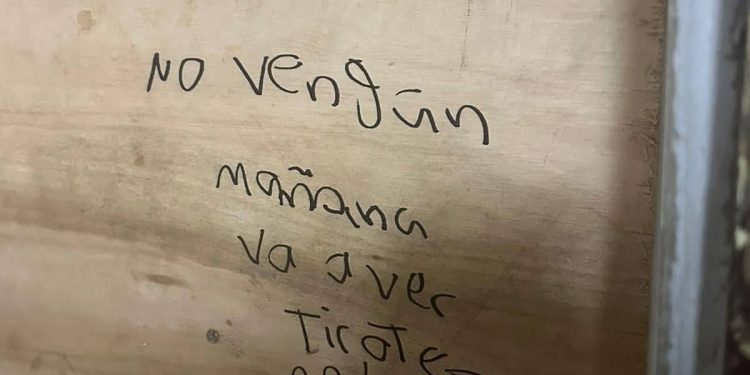 No vengan
mañana
va aver
Tirote